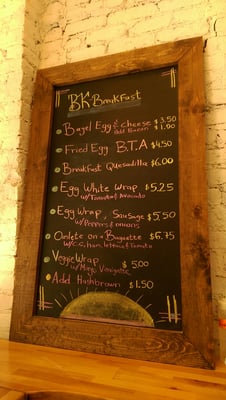 BK Breakfast
Bagel Egg & cheese $3.50
Add Bacon $1.00
Fried Egg B.T.A $4.50
Breakfast Quesadilla $6.00
Egg White Wrap $5.25
w/Tomato & Avocado
Egg Wrap, Sausage $5.50
w/Peppers & onions
Omlete on a Baguette $6.75
w/C.G, ham, lettuce & Tomato
Veggie Wrap $5.00
w/Mango Vinaigrette
Add Hashbrown $1.50